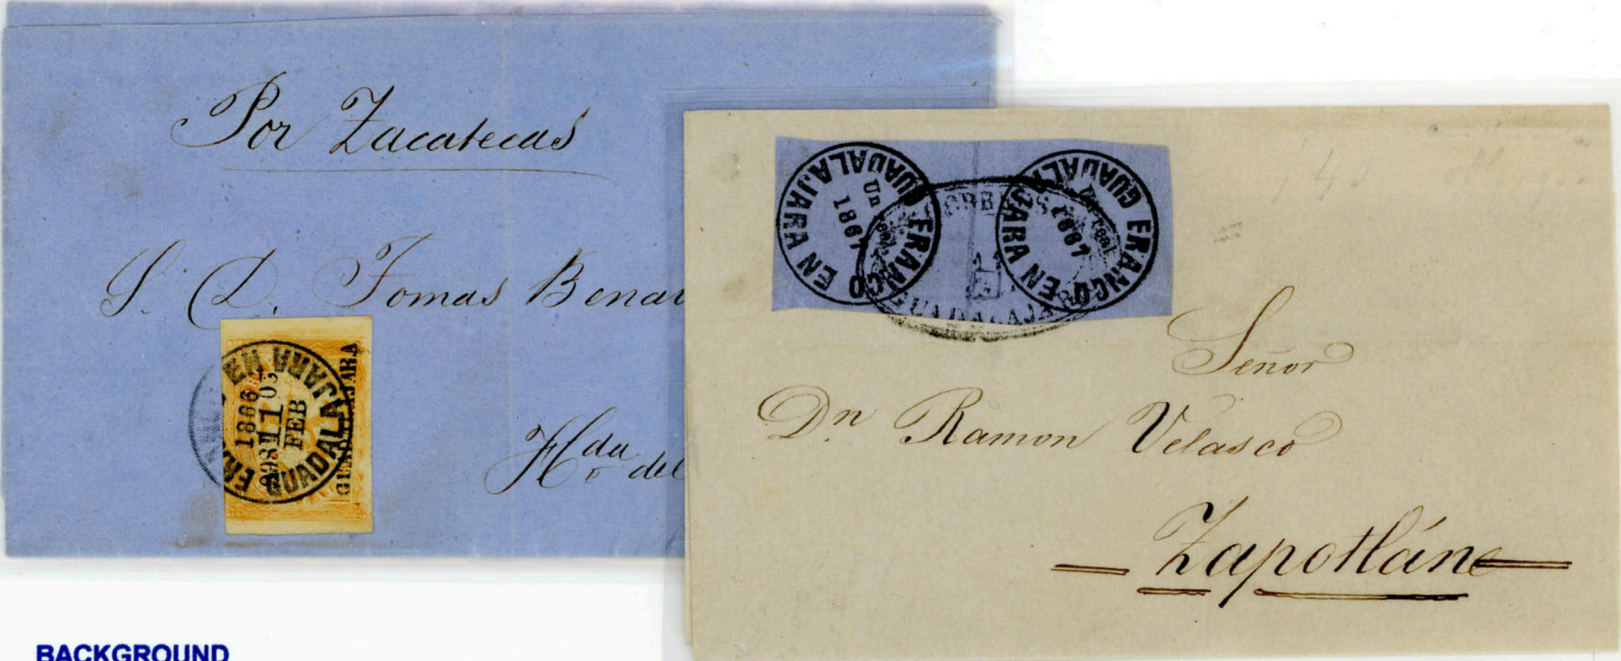 Por Zacatecas
S. D. Tomas
Hda del
FRANCO EN GUADALAJARA
1866
FEB
GUADALAJARA
FRANCO EN GUADALAJARA
Un real
1867
FRANCO EN GUADALAJARA
Un real
1867
GUADALAJARA
Señor
Dn Ramon Velasco
Zapotlán
BACKGROUND